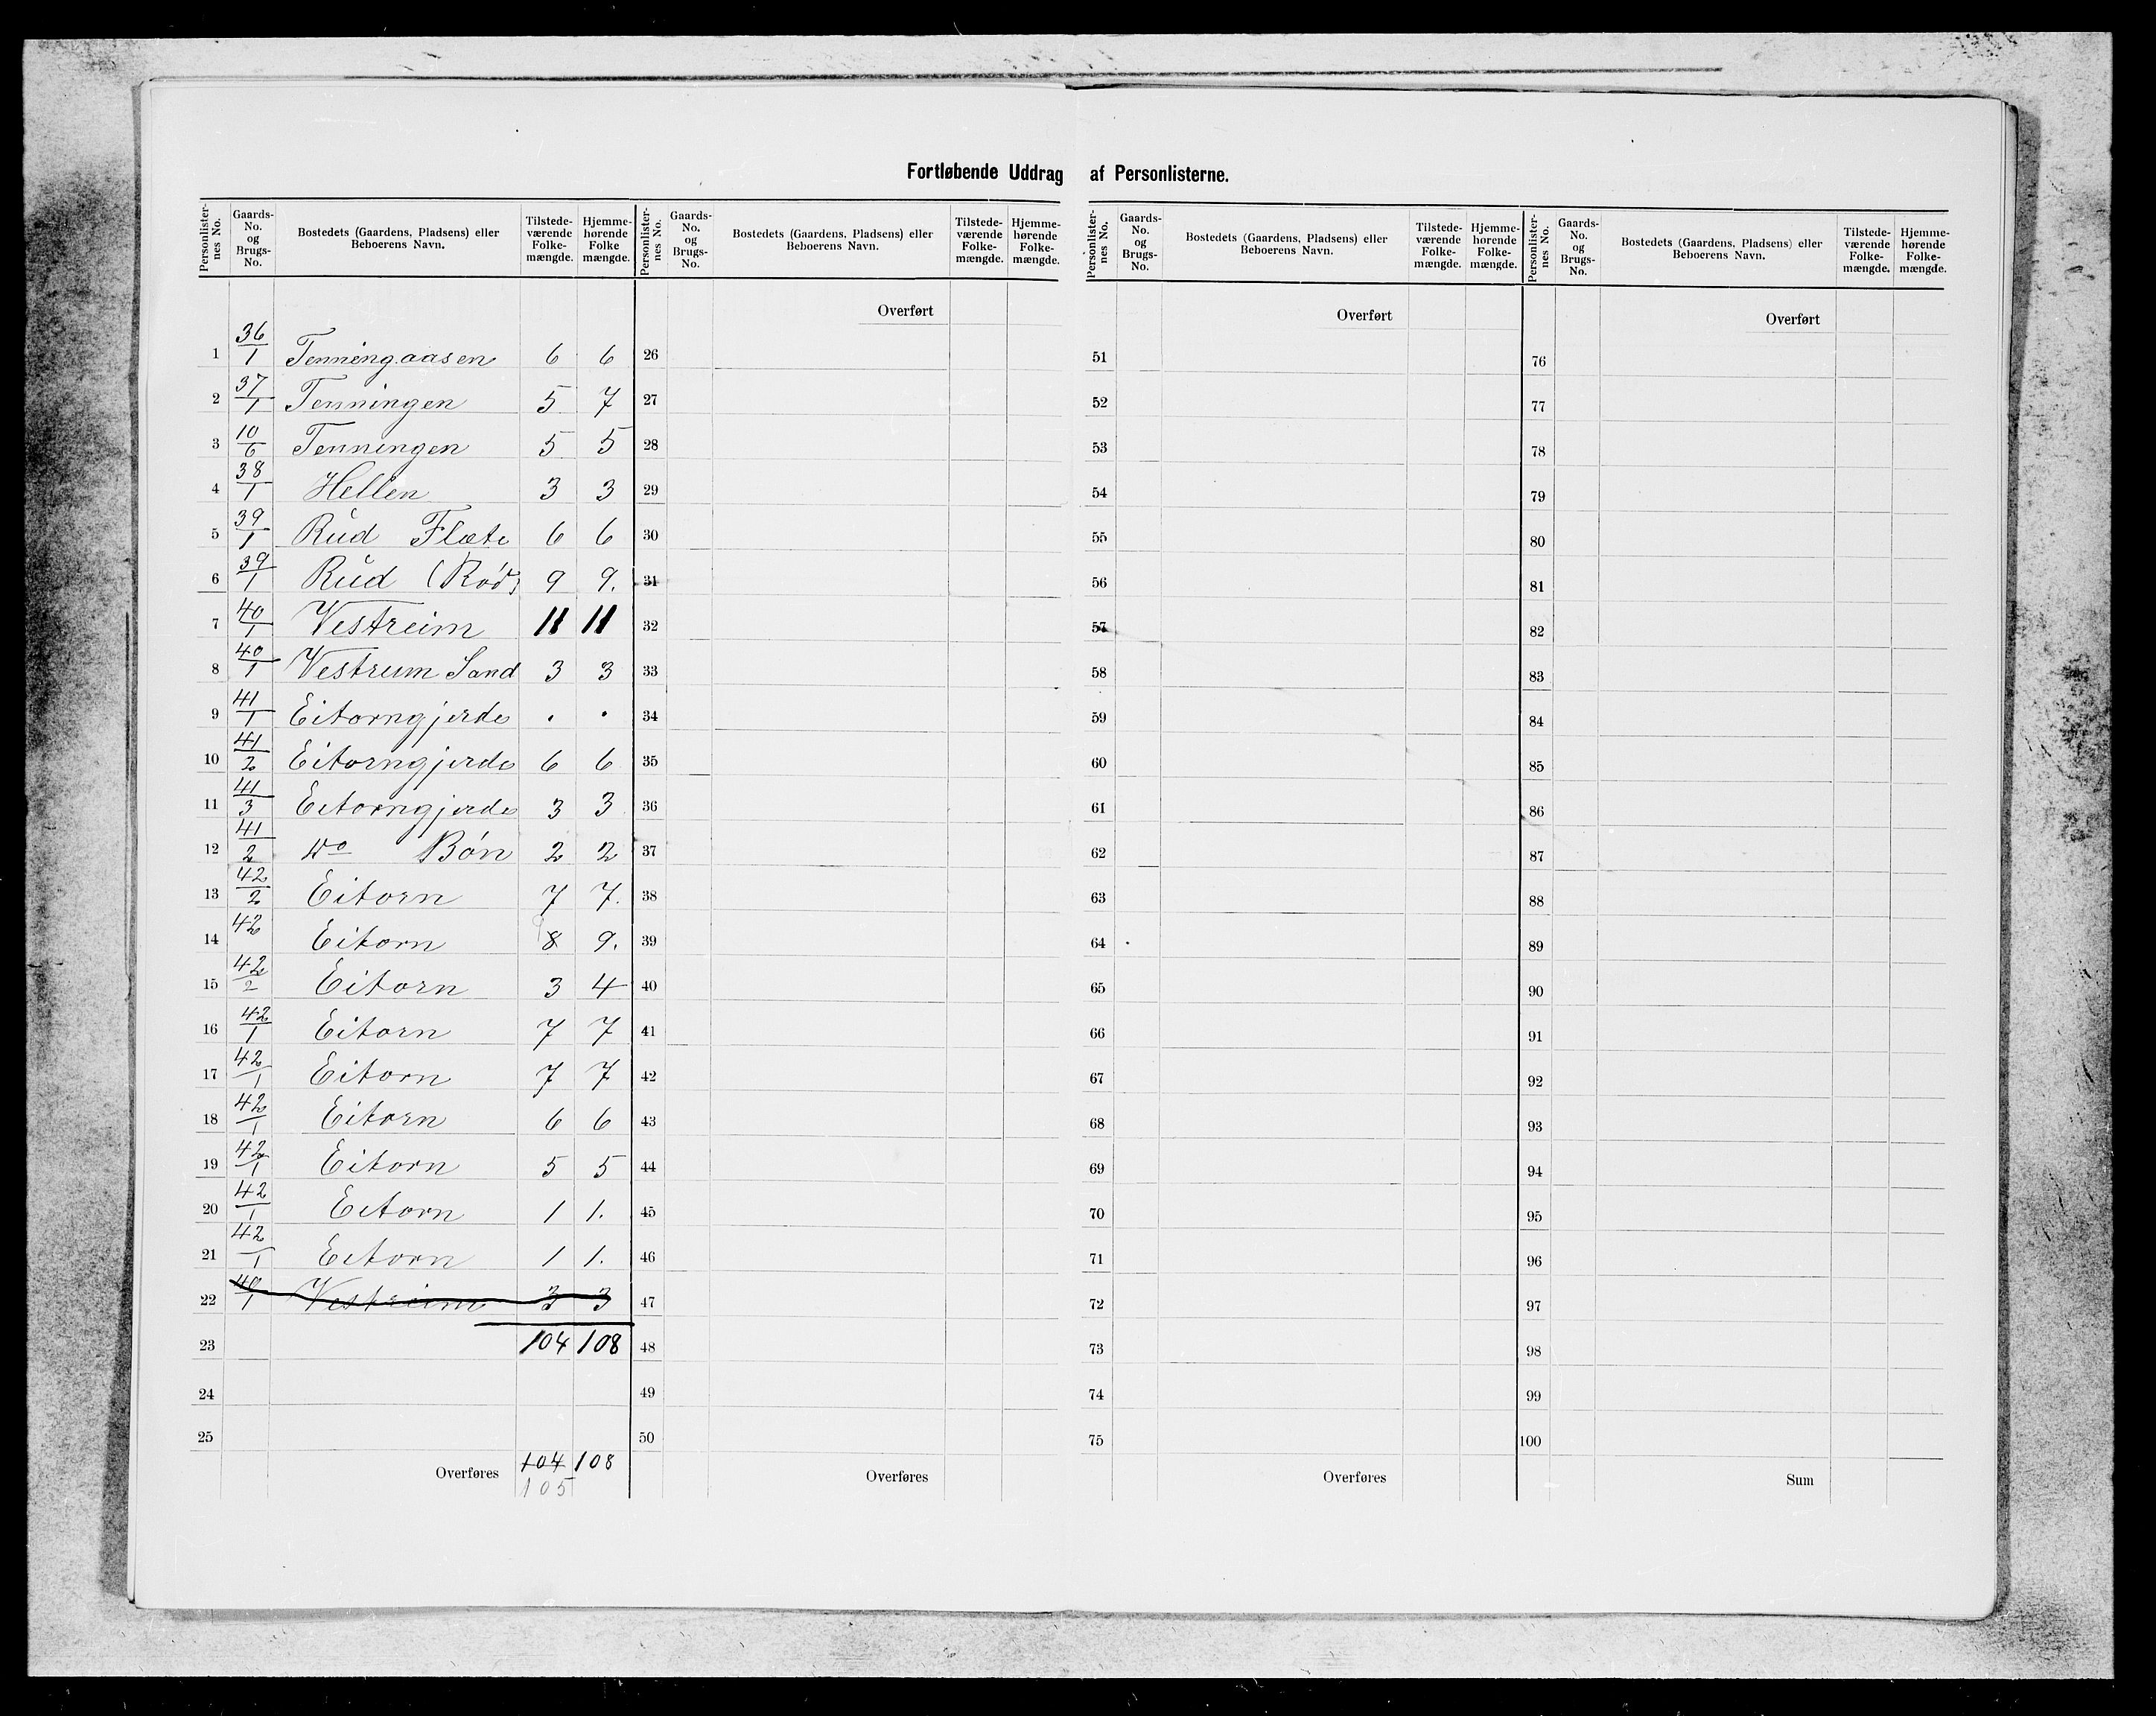 Fortløbende Uddrag af Personlisterne.
Personlister-nes No. Gaards-No. og Brugs-No. Bostedets (Gaardens, Pladsens) eller Beboerens Navn. Tilstede-værende Folke-mængde. Hjemme-hørende Folke mængde.
1 36/1 Tenningaasen 6 6
2 37/1 Tenningen 5 7
3 10/6 Tenningen 5 5
4 38/1 Hellen 3 3
5 39/1 Rud Flæte 6 6
6 39/1 Rud (Rød) 9 9.
7 40/1 Vestreim 11 11
8 40/1 Vestreim Sand 3 3
9 41/1 Eitorngjerde . .
10 41/2 Eitorngjerde 6 6
11 41/3 Eitorngjerde 3 3
12 41/2 do Bön 2 2
13 42/2 Eitorn 7 7.
14 42 Eitorn 8 9 9.
15 42/2 Eitorn 3 4
16 42/1 Eitorn 7 7
17 42/1 Eitorn 7 7
18 42/1 Eitorn 6 6
19 42/1 Eitorn 5 5
20 42/1 Eitorn 1 1.
21 42/1 Eitorn 1 1.
22 40/1 Vestreim 3 3
23 104 108
24
25
Overføres 104 108
105
Personlister-nes No. Gaards-No. og Brugs-No. Bostedets (Gaardens, Pladsens) eller Beboerens Navn. Tilstede-værende Folke-mængde. Hjemme-hørende Folke-mængde.
Overført
26
27
28
29
30
31
32
33
34
35
36
37
38
39
40
41
42
43
44
45
46
47
48
49
50
Overføres
Personlister-nes No. Gaards-No. og Brugs-No. Bostedets (Gaardens, Pladsens) eller Beboerens Navn. Tilstede-værende Folke-mængde. Hjemme-hørende Folke-mængde.
Overført
51
52
53
54
55
56
57
58
59
60
61
62
63
64
65
66
67
68
69
70
71
72
73
74
75
Overføres
Personlister-nes No. Gaards-No. og Brugs-No. Bostedets (Gaardens, Pladsens) eller Beboerens Navn. Tilstede-værende Folke-mængde. Hjemme-hørende Folke-mængde.
Overført
76
77
78
79
80
81
82
83
84
85
86
87
88
89
90
91
92
93
94
95
96
97
98
99
100
Sum